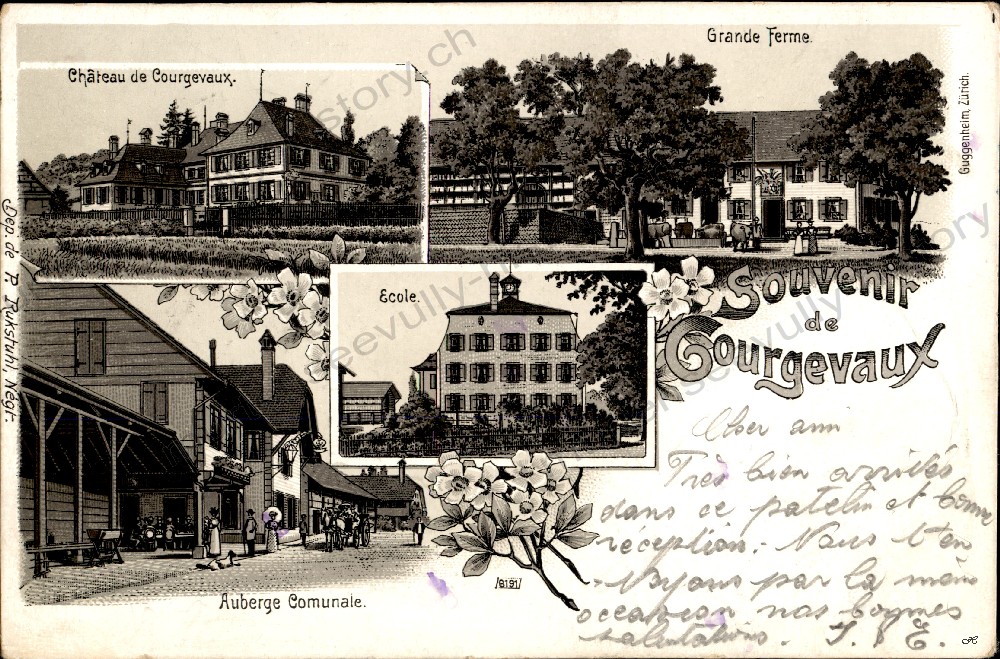 Grande Ferme.
Château de Courgevaux.
Guggenheim, Zürich.
Dep. de R. Dukstuhl, Négt.
Ecole.
Souvenir
de
Courgevaux
Cher ami
Très bien arrivés
dans ce patelin et bonne
réception. Nous t'en
voyons par la même
occasion nos bonnes
salutations. J. & E.
/6191/
Auberge Comunale.
H
seevully-history.ch
seevully-history